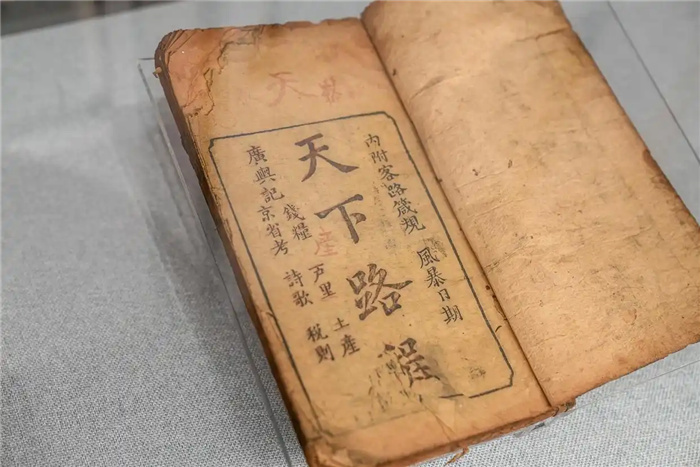 天
内附客路箴規 風暴日期
天下路程
錢糧 戶里 土產
廣輿記京省考 詩歌 稅則